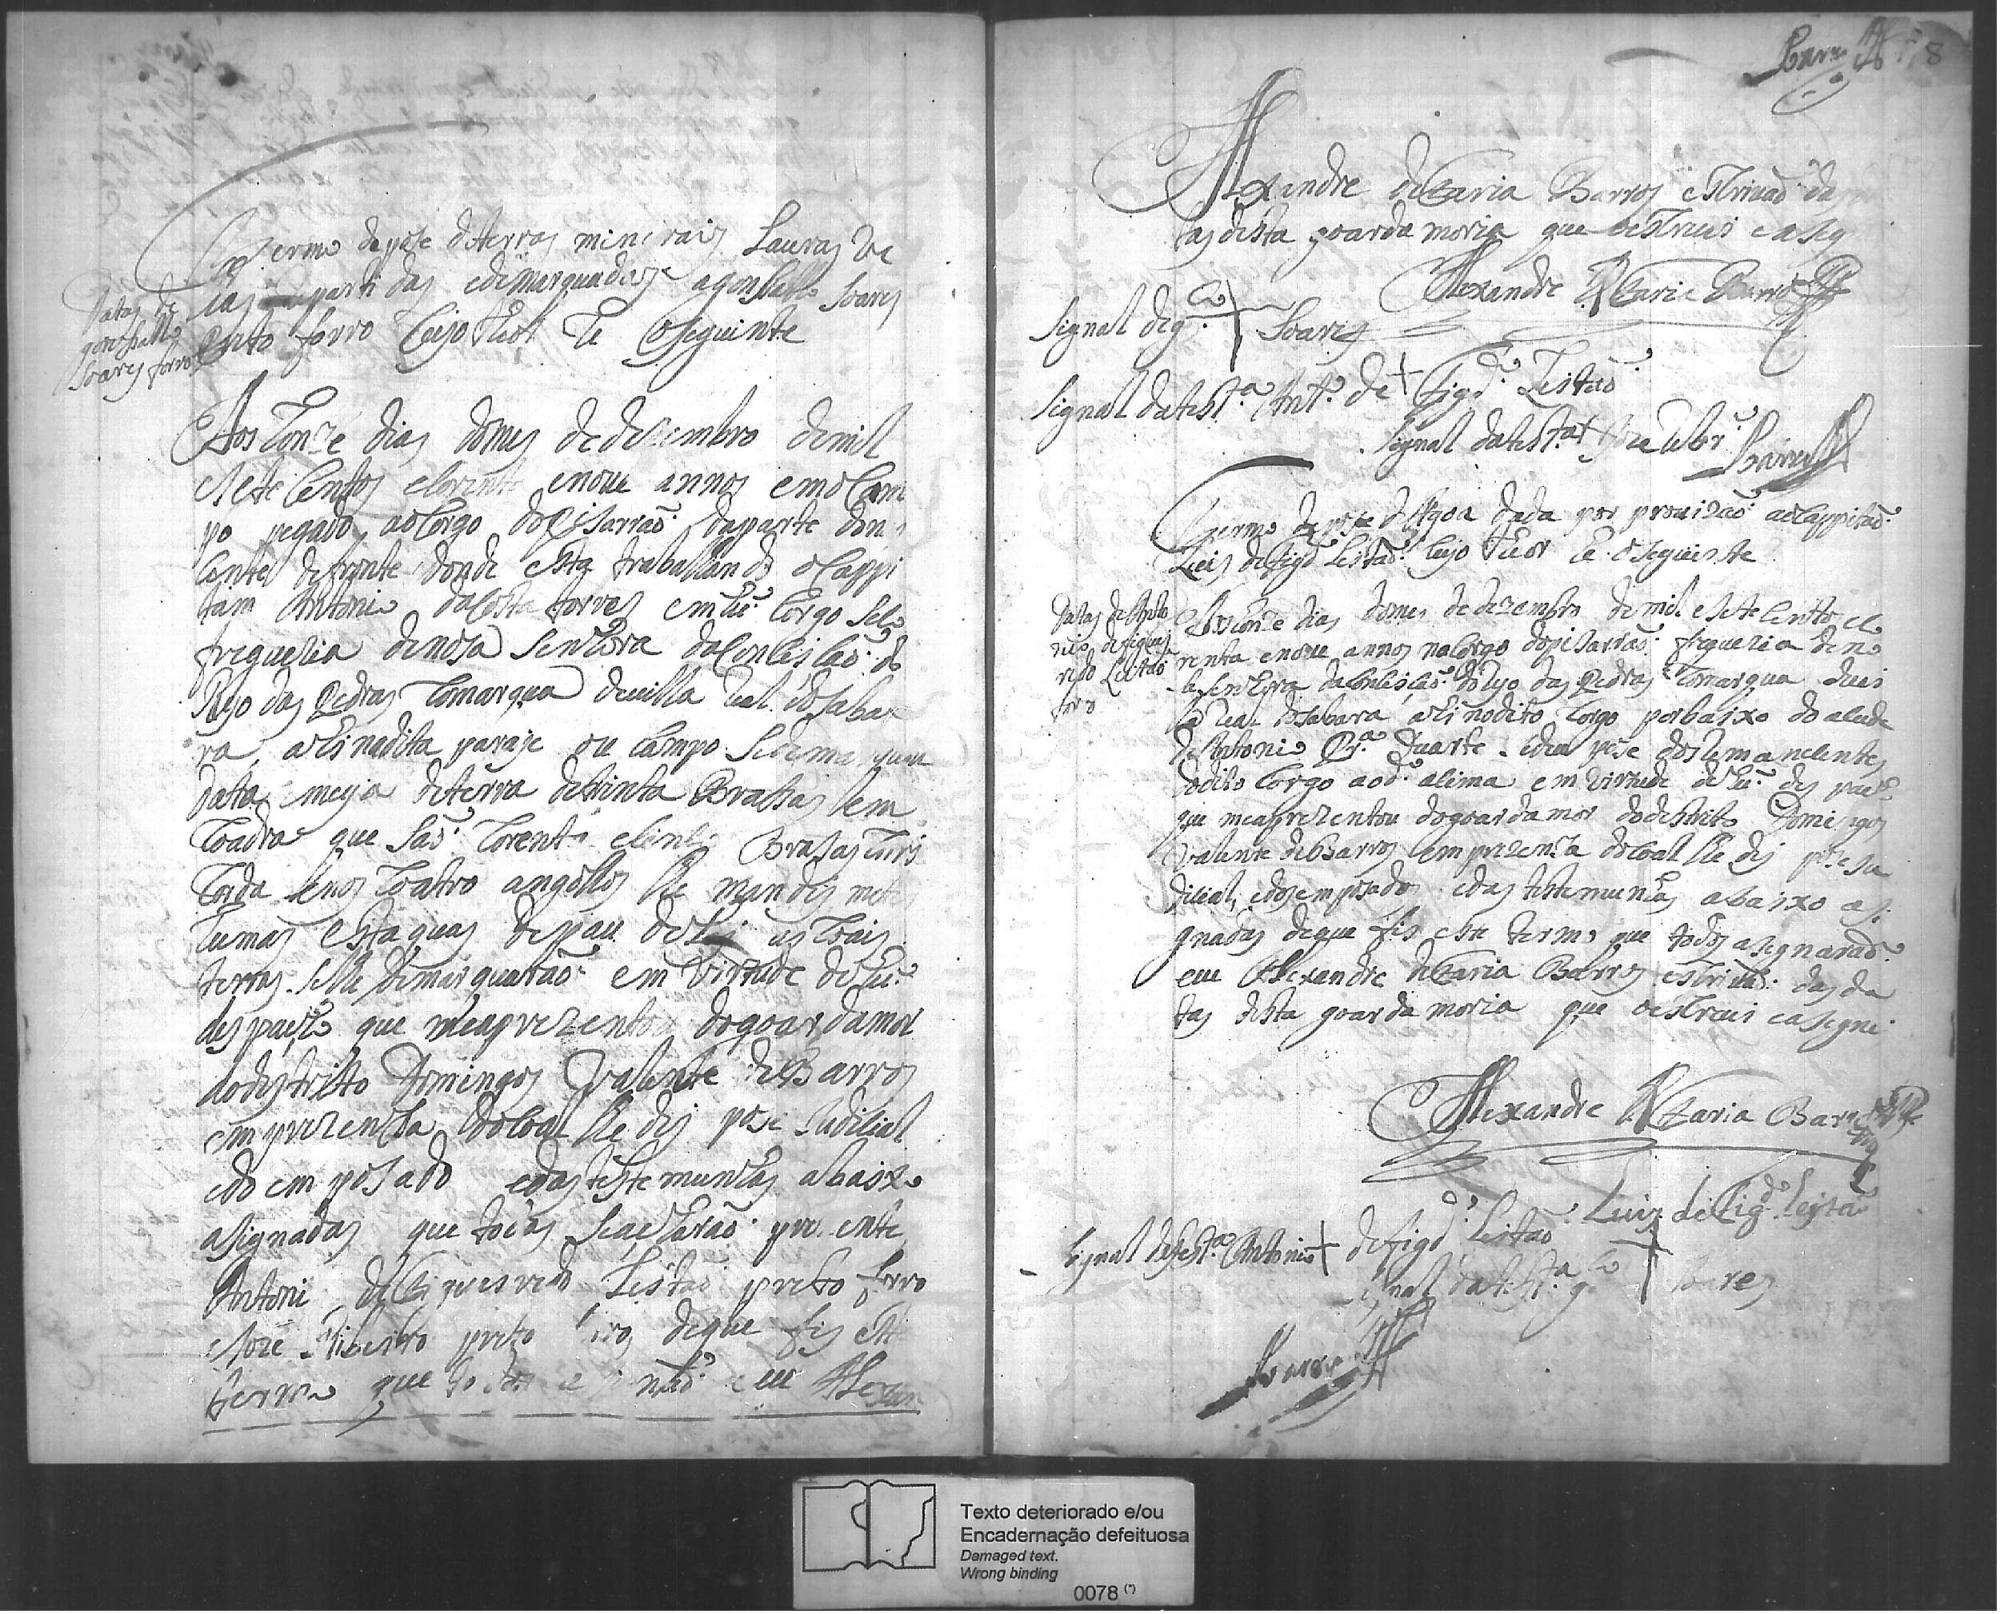 Termo de pose de terras minerais Lauras de
tas repartidas e demarquadas a gonsallo Soares
preto forro Cujo tior he o seguinte
Datas de
gonsallo
Soares forro
Aos Conze dias do mes de dezembro de mil
e sete Centos e Corenta e noue annos em o Cam
po pegado ao Corgo do pisarrão da parte don
Cente defronte donde esta traballando o Cappi
tam Antonio da Costa torres em hũ Corgo Seco
freguezia de nosa Senhora da Conseisão do
Rijo das Pedras Comarqua de uilla Real do Saba
ra, ahi na dita paraje ou Campo Se demarquou
data e meya de terra de trinta Brasas em
Coadra que são Corenta e sinco Brasas Cuxi
Corda e nos Coatro angollos lhe mandei meter
humas estaquas de pau de lei as Coais
terras Se lhe demarquarão em Virtude de hũ
despaxo que me aprezentou do goardamor
do destrito Domingos Valente de Barros
em prezensa do Coal lhe dei pose Judisial
e do emposado e das testemunhas abaixo
asignadas que todas Se acharão prezente
Antonio de figueiredo Leitão preto forro
e Joze Ribeiro preto forro de que fis este
termo que todos asignarão eu Alexan
Barros 78
Alexandre de Faria Barros escriuão das da
tas desta goarda moria que o escreui e asigney
Alexandre de Faria Barros
Signal de g.co + Soares
Signal da test.a Ant.o de + Figd.o Leitão
Signal da test.a + Joze Ribr.o
Barros
Termo de pose de Agoa dada por prouizão ao Cappitão
Luis de figd.o Leitão Cujo tior he o seguinte
Datas de Anto
nio de figuei
redo Leitão
forro
Aos Conze dias do mes de dezembro de mil e sete Centos e Co
renta e noue annos no Corgo do pisarrão freguezia de no
sa Senhora da Conseisão do rijo das Pedras Comarqua de ui
la Real do Sabara, ahi no dito Corgo por baixo do asude
de Antonio Pr.a Duarte e deu pose dos Remanesentes
do dito Corgo a o d.o asima em Virtude de hũ despaxo
que me aprezentou do goardamor do destrito Domingos
Valente de Barros em prezensa do Coal lhe dei pose Ju
disial, e dos emposados e das testemunhas abaixo asi
gnadas de que fis este termo que todos asignarão
eu Alexandre de Faria Barros escriuão das da
tas desta goarda moria que o escreui e asigney
Alexandre de Faria Barros
Luis de Fig.do Leytão
Signal da test.a Antonio + de figd.o Leitão
Signal da test.a g.lo + Soares
Barros
Texto deteriorado e/ou
Encadernação defeituosa
Damaged text.
Wrong binding
0078 (*)